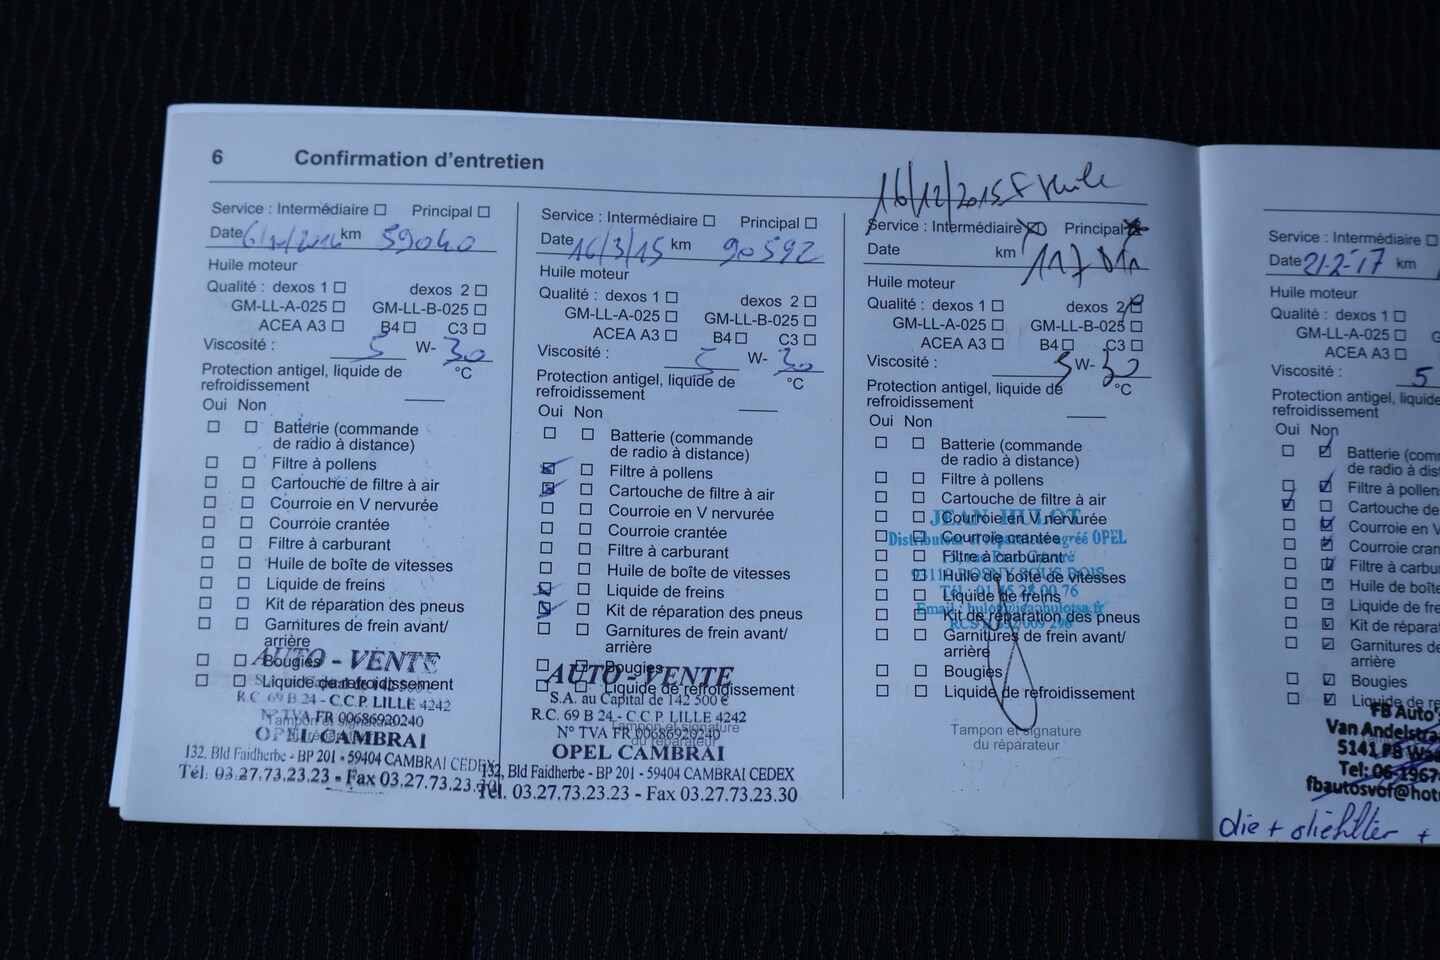 6 Confirmation d'entretien
Service : Intermédiaire ☐ Principal ☐
Date km 59040
Huile moteur
Qualité : dexos 1 ☐ dexos 2 ☐
GM-LL-A-025 ☐ GM-LL-B-025 ☐
ACEA A3 ☐ B4 ☐ C3 ☐
Viscosité : 5 W- 30
Protection antigel, liquide de
refroidissement °C
Oui Non
Batterie (commande
de radio à distance)
Filtre à pollens
Cartouche de filtre à air
Courroie en V nervurée
Courroie crantée
Filtre à carburant
Huile de boîte de vitesses
Liquide de freins
Kit de réparation des pneus
Garnitures de frein avant/
arrière
Bougies
Liquide de refroidissement
Tampon et signature
AUTO - VENTE
R.C. 69 B 24 - C.C.P. LILLE 4242
N° TVA FR 00686920240
OPEL CAMBRAI
132, Bld Faidherbe - BP 201 - 59404 CAMBRAI CEDEX
Tél. 03.27.73.23.23 - Fax 03.27.73.23.30
Service : Intermédiaire ☐ Principal ☐
Date 16/3/15 km 90592
Huile moteur
Qualité : dexos 1 ☐ dexos 2 ☐
GM-LL-A-025 ☐ GM-LL-B-025 ☐
ACEA A3 ☐ B4 ☐ C3 ☐
Viscosité : 5 W- 30
Protection antigel, liquide de
refroidissement °C
Oui Non
Batterie (commande
de radio à distance)
Filtre à pollens
Cartouche de filtre à air
Courroie en V nervurée
Courroie crantée
Filtre à carburant
Huile de boîte de vitesses
Liquide de freins
Kit de réparation des pneus
Garnitures de frein avant/
arrière
Bougies
Liquide de refroidissement
Tampon et signature
du réparateur
AUTO - VENTE
S.A. au Capital de 142 500 €
R.C. 69 B 24 - C.C.P. LILLE 4242
N° TVA FR 00686920240
OPEL CAMBRAI
132, Bld Faidherbe - BP 201 - 59404 CAMBRAI CEDEX
Tél. 03.27.73.23.23 - Fax 03.27.73.23.30
16/12/2015
Service : Intermédiaire Principal
Date km
Huile moteur
Qualité : dexos 1 ☐ dexos 2
GM-LL-A-025 ☐ GM-LL-B-025 ☐
ACEA A3 ☐ B4 ☐ C3 ☐
Viscosité : 5 W- 30
Protection antigel, liquide de
refroidissement °C
Oui Non
Batterie (commande
de radio à distance)
Filtre à pollens
Cartouche de filtre à air
Courroie en V nervurée
Courroie crantée
Filtre à carburant
Huile de boîte de vitesses
Liquide de freins
Kit de réparation des pneus
Garnitures de frein avant/
arrière
Bougies
Liquide de refroidissement
JEAN HULOT
Tampon et signature
du réparateur
Service : Intermédiaire ☐
Date 21-2-17 km
Huile moteur
Qualité : dexos 1 ☐
GM-LL-A-025 ☐
ACEA A3 ☐
Viscosité : 5
Protection antigel, liquide
refroidissement
Oui Non
Batterie (comm
de radio à dist
Filtre à pollens
Cartouche de
Courroie en V
Courroie cran
Filtre à carbu
Huile de boîte
Liquide de fre
Kit de réparat
Garnitures de
arrière
Bougies
Liquide de re
FB Auto's
Van Andelstra
5141 PB Waa
Tel: 06-1967
fbautosvof@hotm